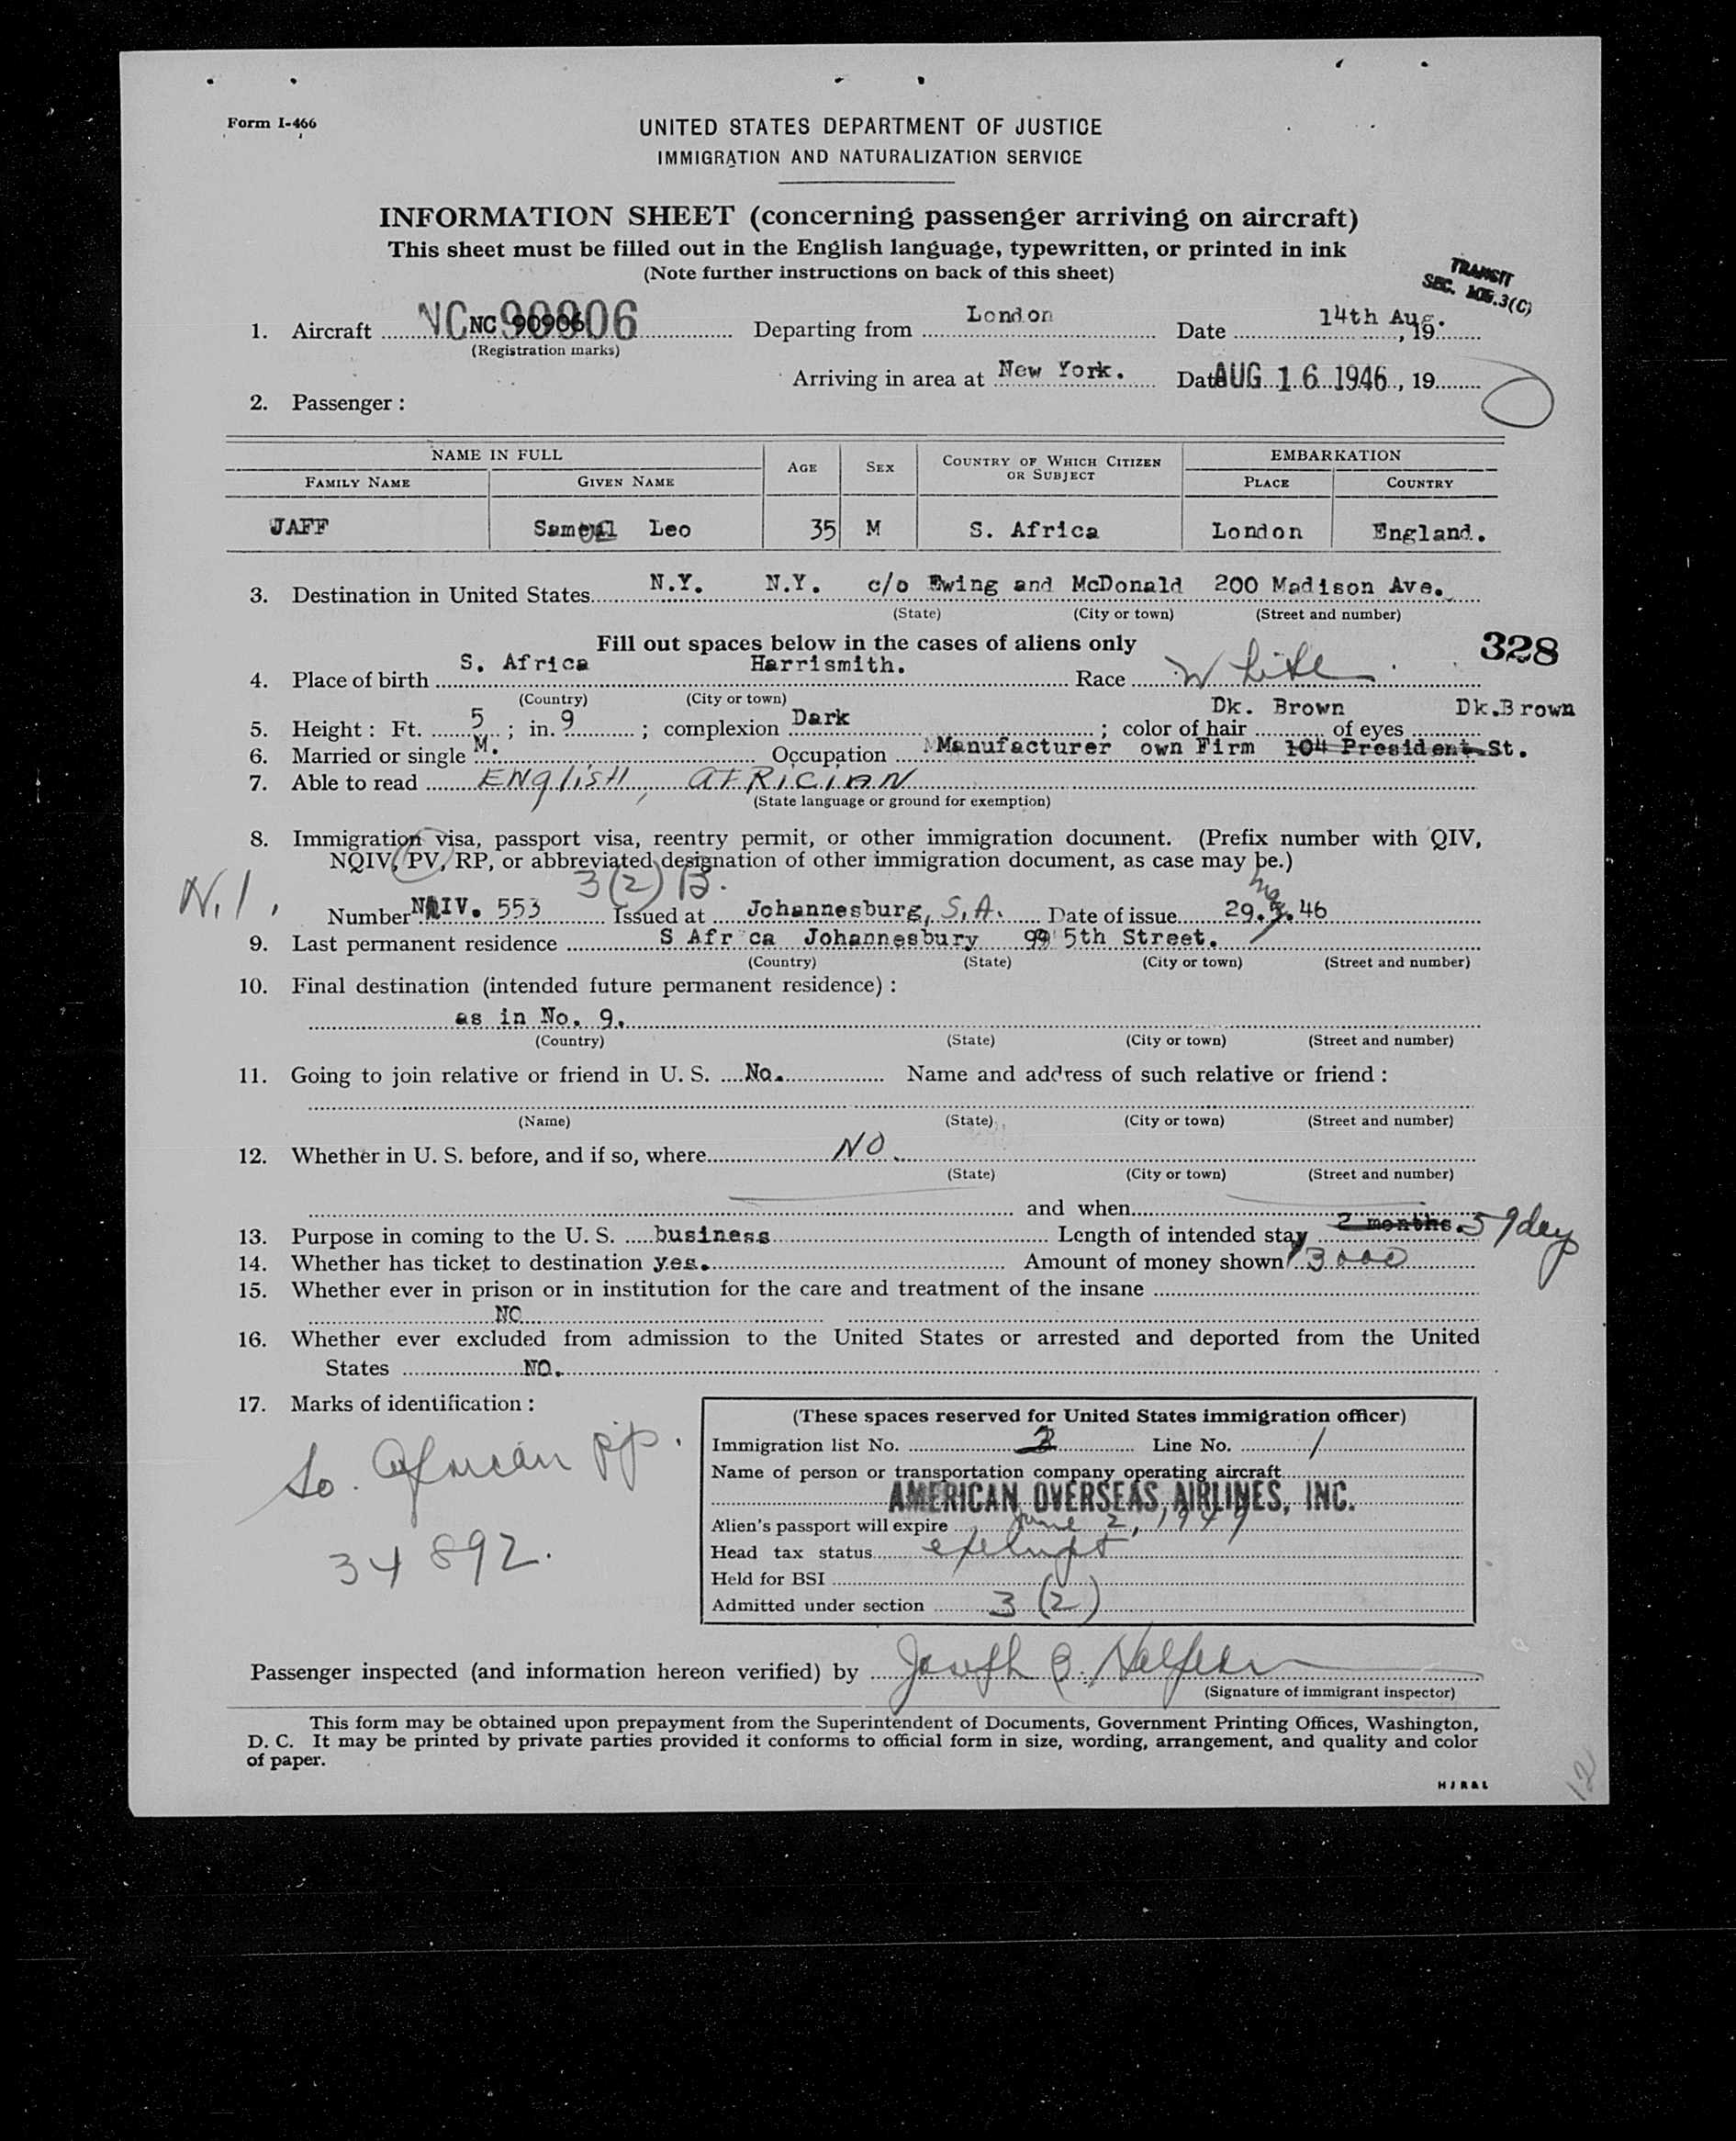 Form I-466
UNITED STATES DEPARTMENT OF JUSTICE
IMMIGRATION AND NATURALIZATION SERVICE
INFORMATION SHEET (concerning passenger arriving on aircraft)
This sheet must be filled out in the English language, typewritten, or printed in ink
(Note further instructions on back of this sheet)
TRANSIT
SEC. 105.3(C)
1. Aircraft NC 90906 Departing from London Date 14th Aug. , 19
(Registration marks)
Arriving in area at New York. Date AUG 16 1946 , 19
2. Passenger :
NAME IN FULL AGE SEX COUNTRY OF WHICH CITIZEN OR SUBJECT EMBARKATION
FAMILY NAME GIVEN NAME PLACE COUNTRY
JAFF Samuel Leo 35 M S. Africa London England.
3. Destination in United States N.Y. N.Y. c/o Ewing and McDonald 200 Madison Ave.
(State) (City or town) (Street and number)
Fill out spaces below in the cases of aliens only
328
4. Place of birth S. Africa Harrismith. Race White
(Country) (City or town)
5. Height : Ft. 5 ; in. 9 ; complexion Dark ; color of hair Dk. Brown of eyes Dk.Brown
6. Married or single M. Occupation Manufacturer own Firm 104 President St.
7. Able to read ENglisH, aFRICIAN
(State language or ground for exemption)
8. Immigration visa, passport visa, reentry permit, or other immigration document. (Prefix number with QIV,
NQIV, PV, RP, or abbreviated designation of other immigration document, as case may be.)
3(2) B.
N.I. Number IV. 553 Issued at Johannesburg, S.A. Date of issue 29. may 46
9. Last permanent residence S Afr ca Johannesbury 99 5th Street.
(Country) (State) (City or town) (Street and number)
10. Final destination (intended future permanent residence) :
as in No. 9.
(Country) (State) (City or town) (Street and number)
11. Going to join relative or friend in U. S. No. Name and address of such relative or friend :
(Name) (State) (City or town) (Street and number)
12. Whether in U. S. before, and if so, where NO.
(State) (City or town) (Street and number)
and when
13. Purpose in coming to the U. S. business Length of intended stay 2 months. 59 day
14. Whether has ticket to destination yes. Amount of money shown 3000
15. Whether ever in prison or in institution for the care and treatment of the insane
NO
16. Whether ever excluded from admission to the United States or arrested and deported from the United
States NO.
17. Marks of identification :
So. African pp.
34892.
(These spaces reserved for United States immigration officer)
Immigration list No. 2 Line No. 1
Name of person or transportation company operating aircraft
AMERICAN OVERSEAS AIRLINES, INC.
Alien's passport will expire June 2, 1949
Head tax status exempt
Held for BSI
Admitted under section 3 (2)
Passenger inspected (and information hereon verified) by Joseph
(Signature of immigrant inspector)
This form may be obtained upon prepayment from the Superintendent of Documents, Government Printing Offices, Washington,
D. C. It may be printed by private parties provided it conforms to official form in size, wording, arrangement, and quality and color
of paper.
12